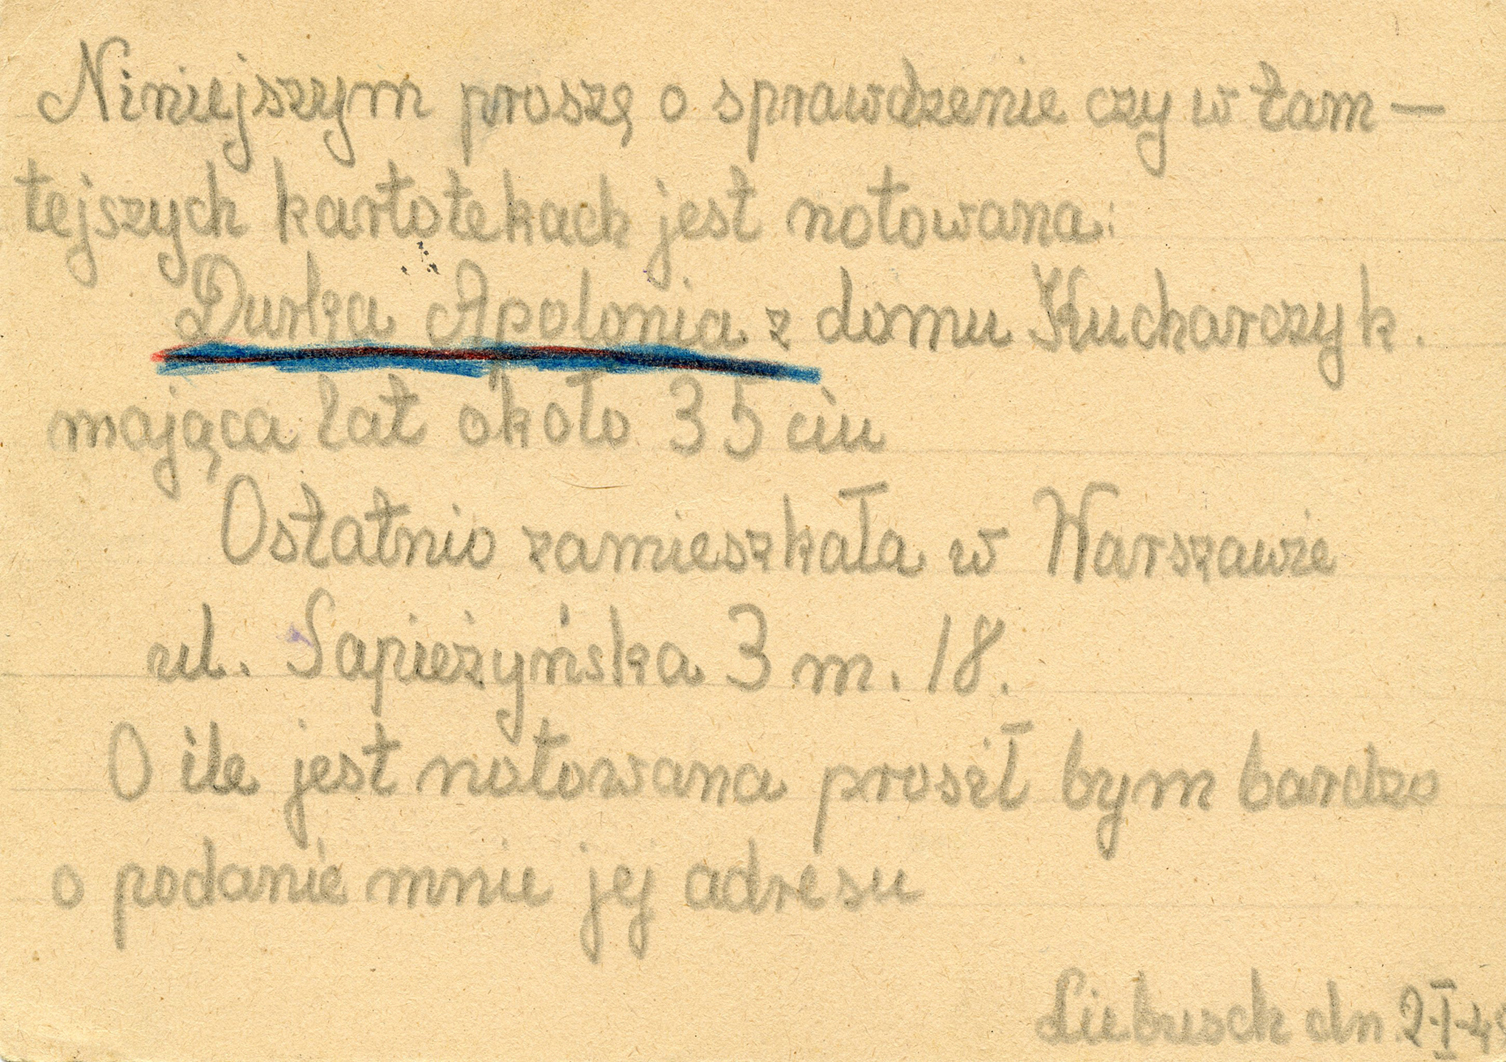 Niniejszym proszę o sprawdzenie czy w tam—
tejszych kartotekach jest notowana:
Durka Apolonia z domu Kucharczyk.
mająca lat około 35 ciu
Ostatnio zamieszkała w Warszawie
ul. Sapieżyńska 3 m. 18.
O ile jest notowana prosił bym bardzo
o podanie mnie jej adresu
dn 2-I-4